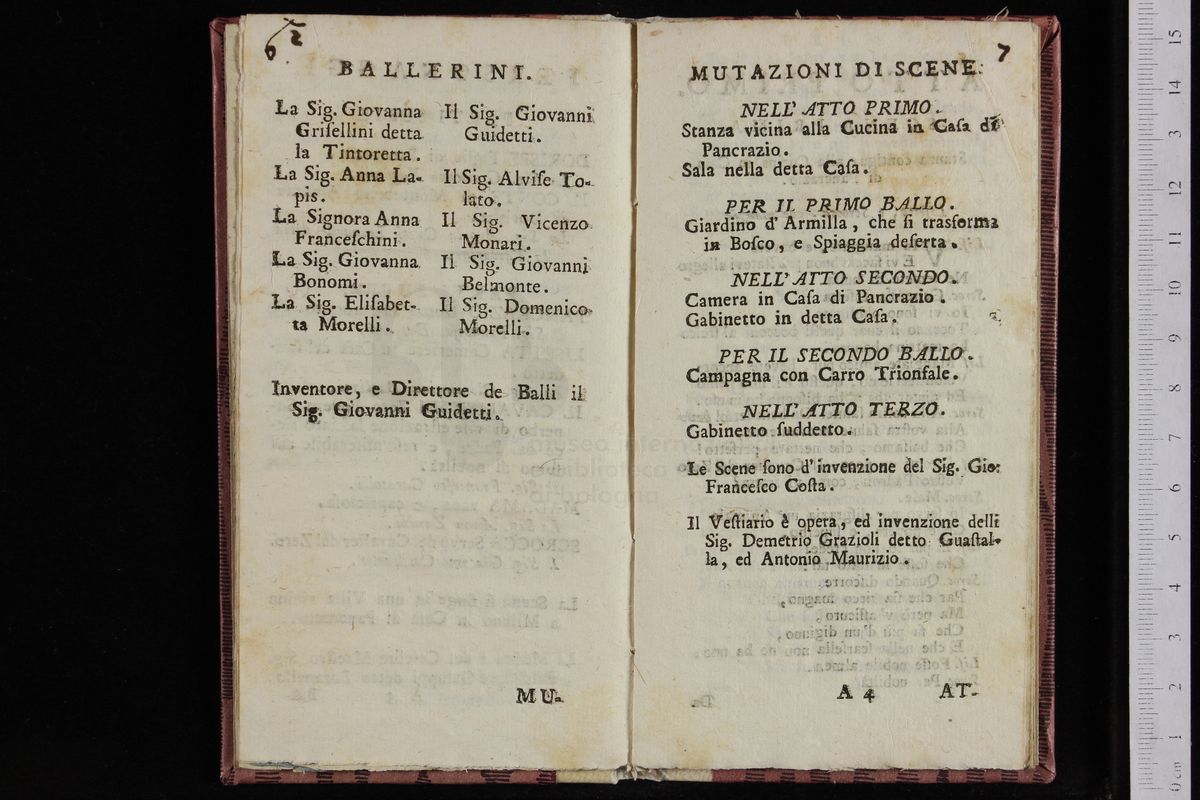 6
BALLERINI.
La Sig. Giovanna
Griſellini detta
la Tintoretta.
La Sig. Anna La-
pis.
La Signora Anna
Franceſchini.
La Sig. Giovanna
Bonomi.
La Sig. Eliſabet-
ta Morelli.
Il Sig. Giovanni
Guidetti.
Il Sig. Alviſe To-
lato.
Il Sig. Vicenzo
Monari.
Il Sig. Giovanni
Belmonte.
Il Sig. Domenico
Morelli.
Inventore, e Direttore de Balli il
Sig. Giovanni Guidetti.
MU-
7
MUTAZIONI DI SCENE.
NELL' ATTO PRIMO.
Stanza vicina alla Cucina in Caſa di
Pancrazio.
Sala nella detta Caſa.
PER IL PRIMO BALLO.
Giardino d' Armilla, che ſi trasforma
in Boſco, e Spiaggia deſerta.
NELL' ATTO SECONDO.
Camera in Caſa di Pancrazio.
Gabinetto in detta Caſa.
PER IL SECONDO BALLO.
Campagna con Carro Trionfale.
NELL' ATTO TERZO.
Gabinetto ſuddetto.
Le Scene ſono d' invenzione del Sig. Gio:
Franceſco Coſta.
Il Veſtiario è opera, ed invenzione delli
Sig. Demetrio Grazioli detto Guaſtal-
la, ed Antonio Maurizio.
A 4 AT-
museo internazionale
biblioteca
di bologna
0 cm 1 2 3 4 5 6 7 8 9 10 11 12 13 14 15